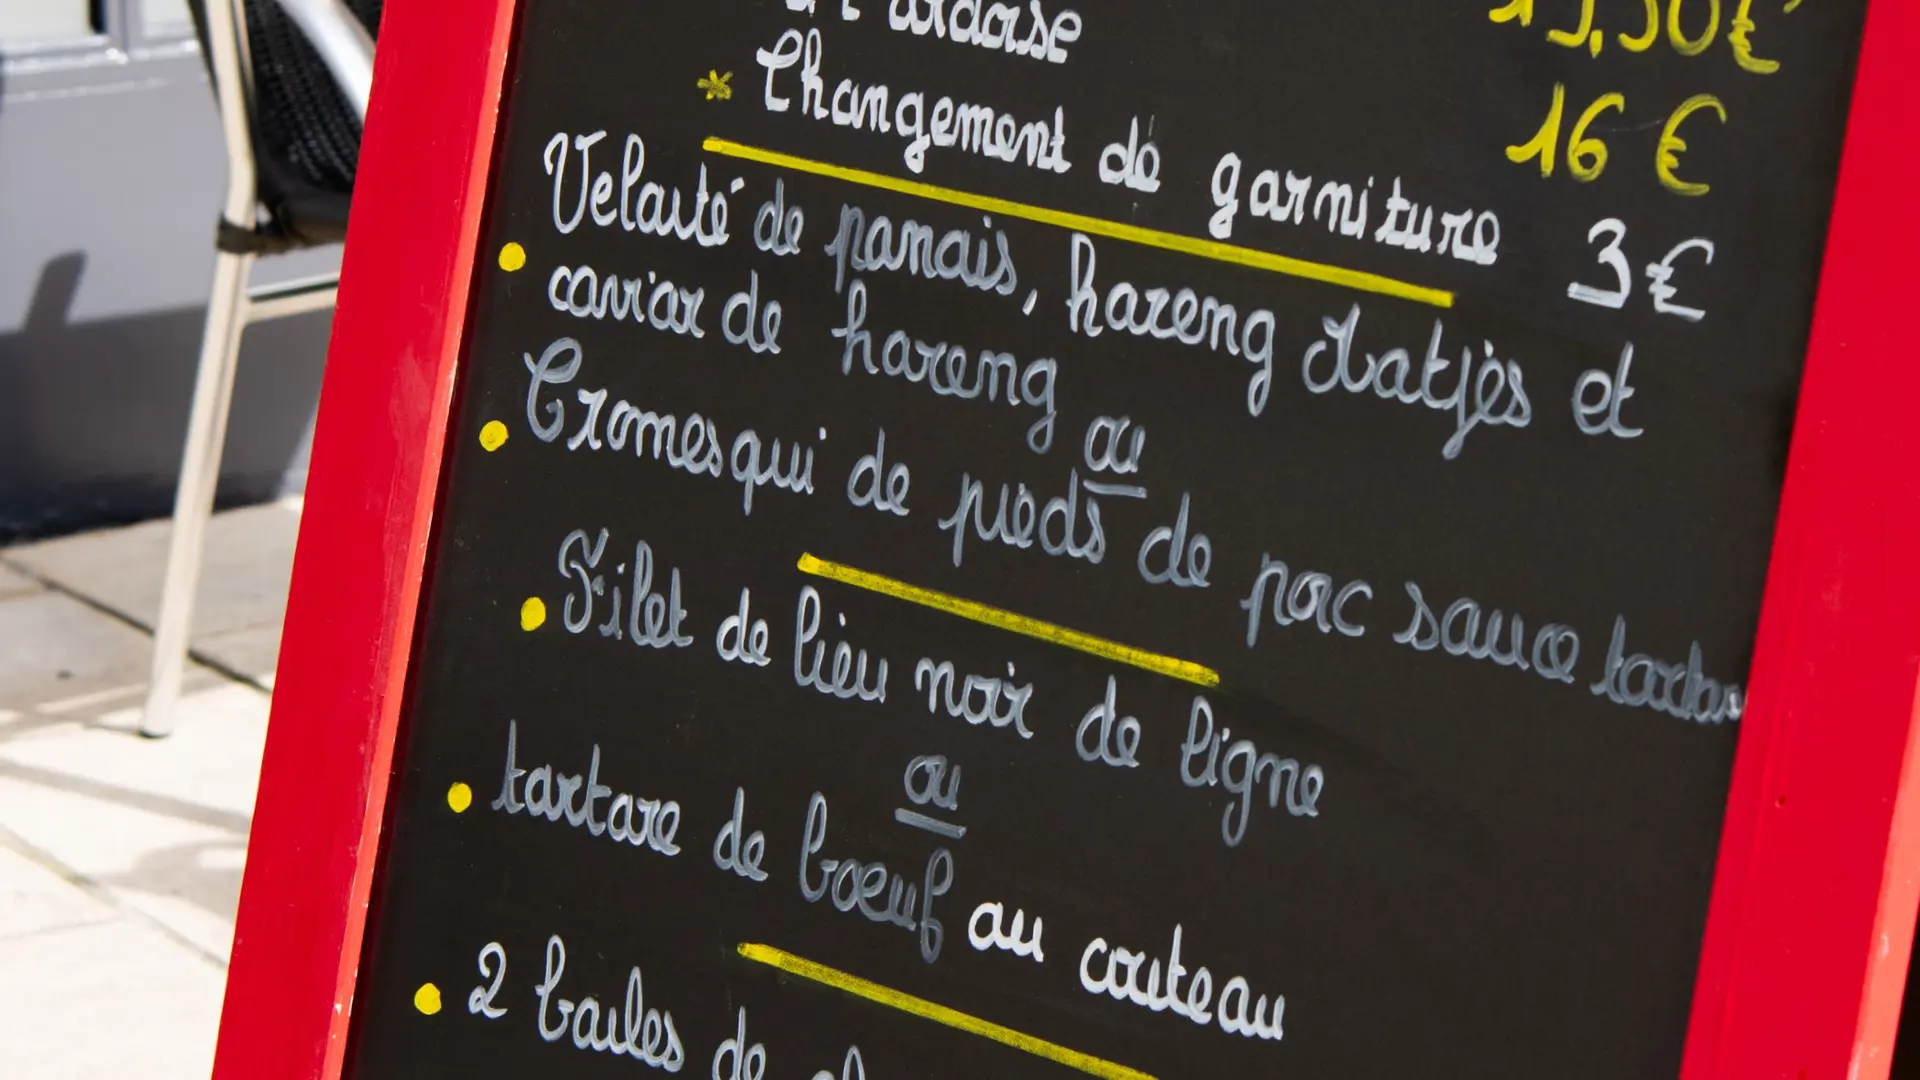 à l'ardoise 15,50€
16 €
* Changement de garniture 3€
Velouté de panais, hareng Matjès et
caviar de hareng
ou
Cromesqui de pieds de porc sauce tartare
Filet de lieu noir de ligne
ou
tartare de boeuf au couteau
2 boules de